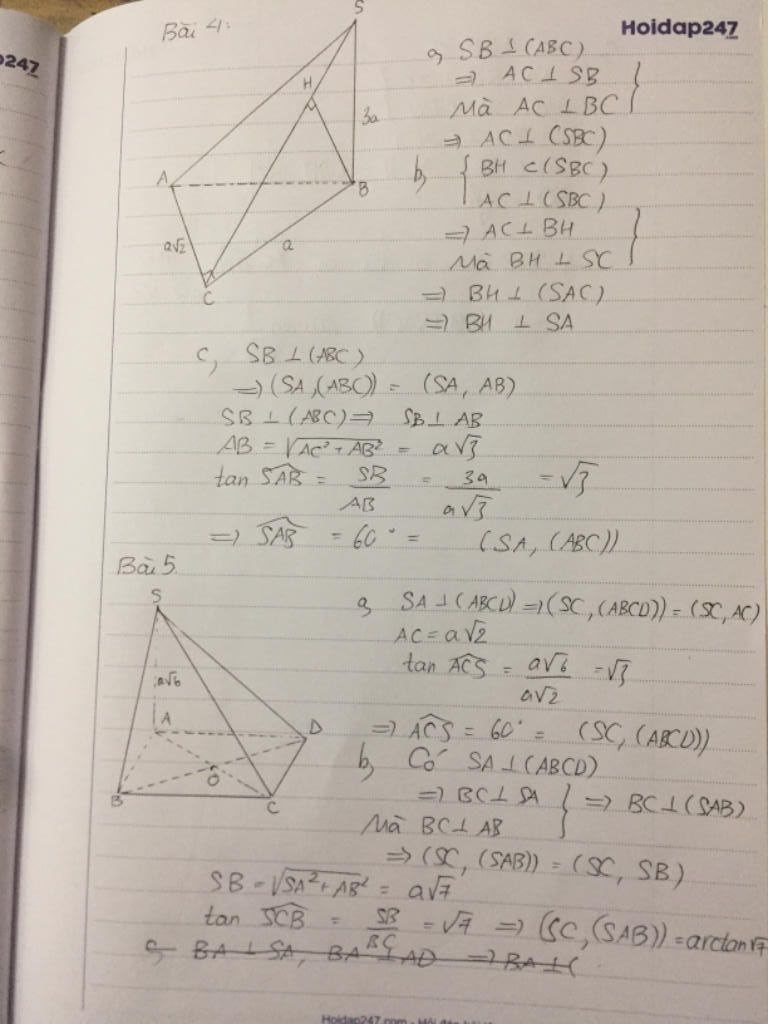 247
Hoidap247
Bài 4:
S
H
3a
A
B
a√2
a
C
a, SB ⊥ (ABC)
⇒ AC ⊥ SB
Mà AC ⊥ BC
⇒ AC ⊥ (SBC)
b, { BH ⊂ (SBC)
AC ⊥ (SBC)
⇒ AC ⊥ BH
Mà BH ⊥ SC
⇒ BH ⊥ (SAC)
⇒ BH ⊥ SA
c, SB ⊥ (ABC)
⇒ (SA,(ABC)) = (SA, AB)
SB ⊥ (ABC) ⇒ SB ⊥ AB
AB = √(AC² + AB²) = a√3
tan SAB = SB/AB = 3a/a√3 = √3
⇒ SAB = 60° = (SA, (ABC))
Bài 5
S
a√6
A
D
O
B
C
a, SA ⊥ (ABCD) ⇒ (SC, (ABCD)) = (SC, AC)
AC = a√2
tan ACS = a√6/a√2 = √3
⇒ ACS = 60° = (SC, (ABCD))
b, Có SA ⊥ (ABCD)
⇒ BC ⊥ SA } ⇒ BC ⊥ (SAB)
Mà BC ⊥ AB
⇒ (SC, (SAB)) = (SC, SB)
SB = √(SA² + AB²) = a√7
tan SCB = SB/BC = √7 ⇒ (SC, (SAB)) = arctan√7
c, BA ⊥ SA, BA ⊥ AD ⇒ BA ⊥ (